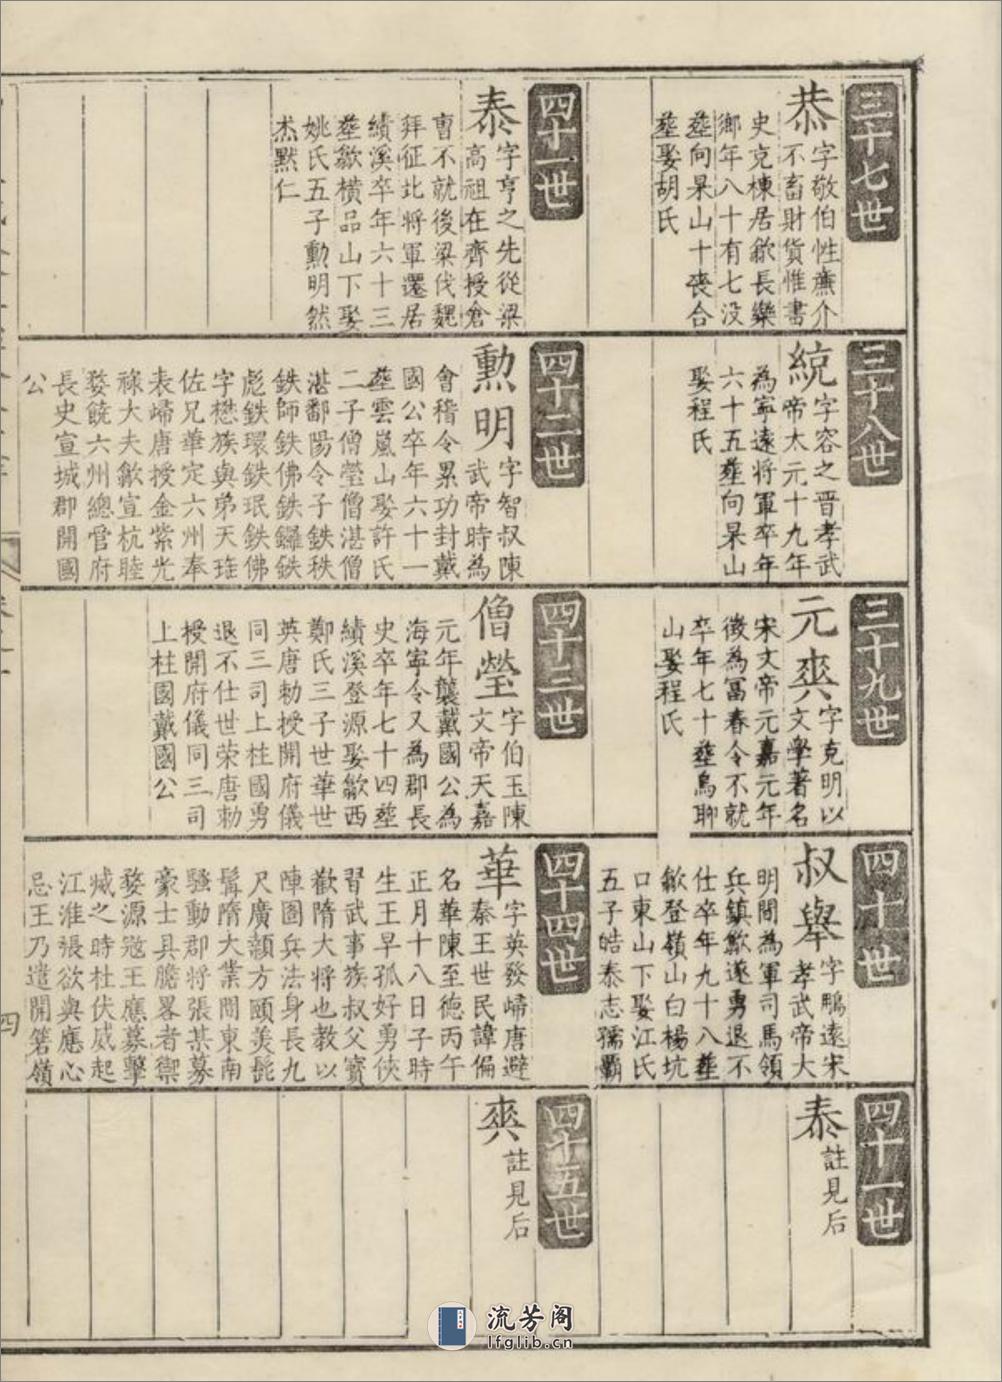 三十七世
恭
字敬伯性㢘介
不畜財貨惟書
史克棟居歙長樂
鄉年八十有七没
塟向杲山十喪合
塟娶胡氏
三十八世
統
字容之晋孝武
帝太元十九年
為寧遠将軍卒年
六十五塟向杲山
娶程氏
三十九世
元爽
字克明以
文學著名
宋文帝元嘉元年
徴為冨春令不就
卒年七十塟烏聊
山娶程氏
四十世
叔舉
字鵬遠宋
孝武帝大
明間為軍司馬領
兵鎮歙遂勇退不
仕卒年九十八塟
歙登嶺山白楊坑
口東山下娶江氏
五子皓泰志孺霸
四十一世
泰
註見后
四十一世
泰
字亨之先從梁
高祖在齊授倉
曹不就後梁伐魏
拜征北将軍遷居
績溪卒年六十三
塟歙横品山下娶
姚氏五子勲明然
杰黙仁
四十二世
勲明
字智叔陳
武帝時為
會稽令累功封戴
國公卒年六十一
塟雲嵐山娶許氏
二子僧瑩僧湛僧
湛鄱陽令子鉄秩
鉄師鉄佛鉄鑼鉄
彪鉄環鉄珉鉄佛
字懋族與弟天琟
佐兄華定六州奉
表㱕唐授金紫光
祿大夫歙宣杭睦
婺饒六州總管府
長史宣城郡開國
公
四十三世
僧瑩
字伯玉陳
文帝天嘉
元年襲戴國公為
海寧令又為郡長
史卒年七十四塟
績溪登源娶歙西
鄭氏三子世華世
英唐勅授開府儀
同三司上柱國勇
退不仕世荣唐勅
授開府儀同三司
上柱國戴國公
四十四世
華
字英發㱕唐避
秦王世民諱偏
名華陳至德丙午
正月十八日子時
生王早孤好勇侠
習武事族叔父寳
歡隋大将也教以
陣圖兵法身長九
尺廣顙方頤美髭
髯隋大業間東南
騷動郡将張某募
豪士具膽畧者禦
婺源宼王應募擊
㓕之時杜伏威起
江淮張欲與應心
忌王乃遣開箬嶺
四十五世
爽
註見后
四
流芳阁
lfglib.cn